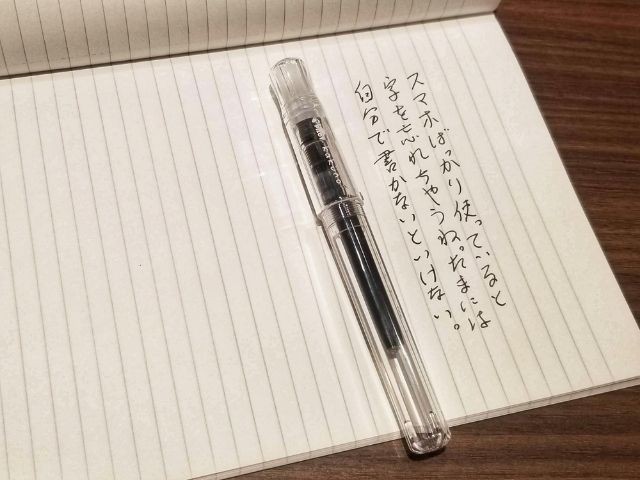 スマホばっかり使っていると
字を忘れちゃうね。たまには
自分で書かないといけない。